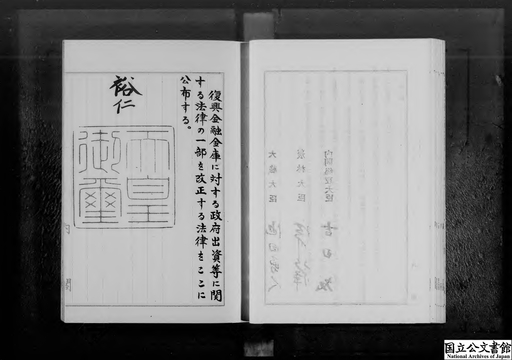 復興金融金庫に対する政府出資等に関
する法律の一部を改正する法律をここに
公布する。
裕仁
天皇
御璽
内閣総理大臣
農林大臣
大蔵大臣
国立公文書館
National Archives of Japan